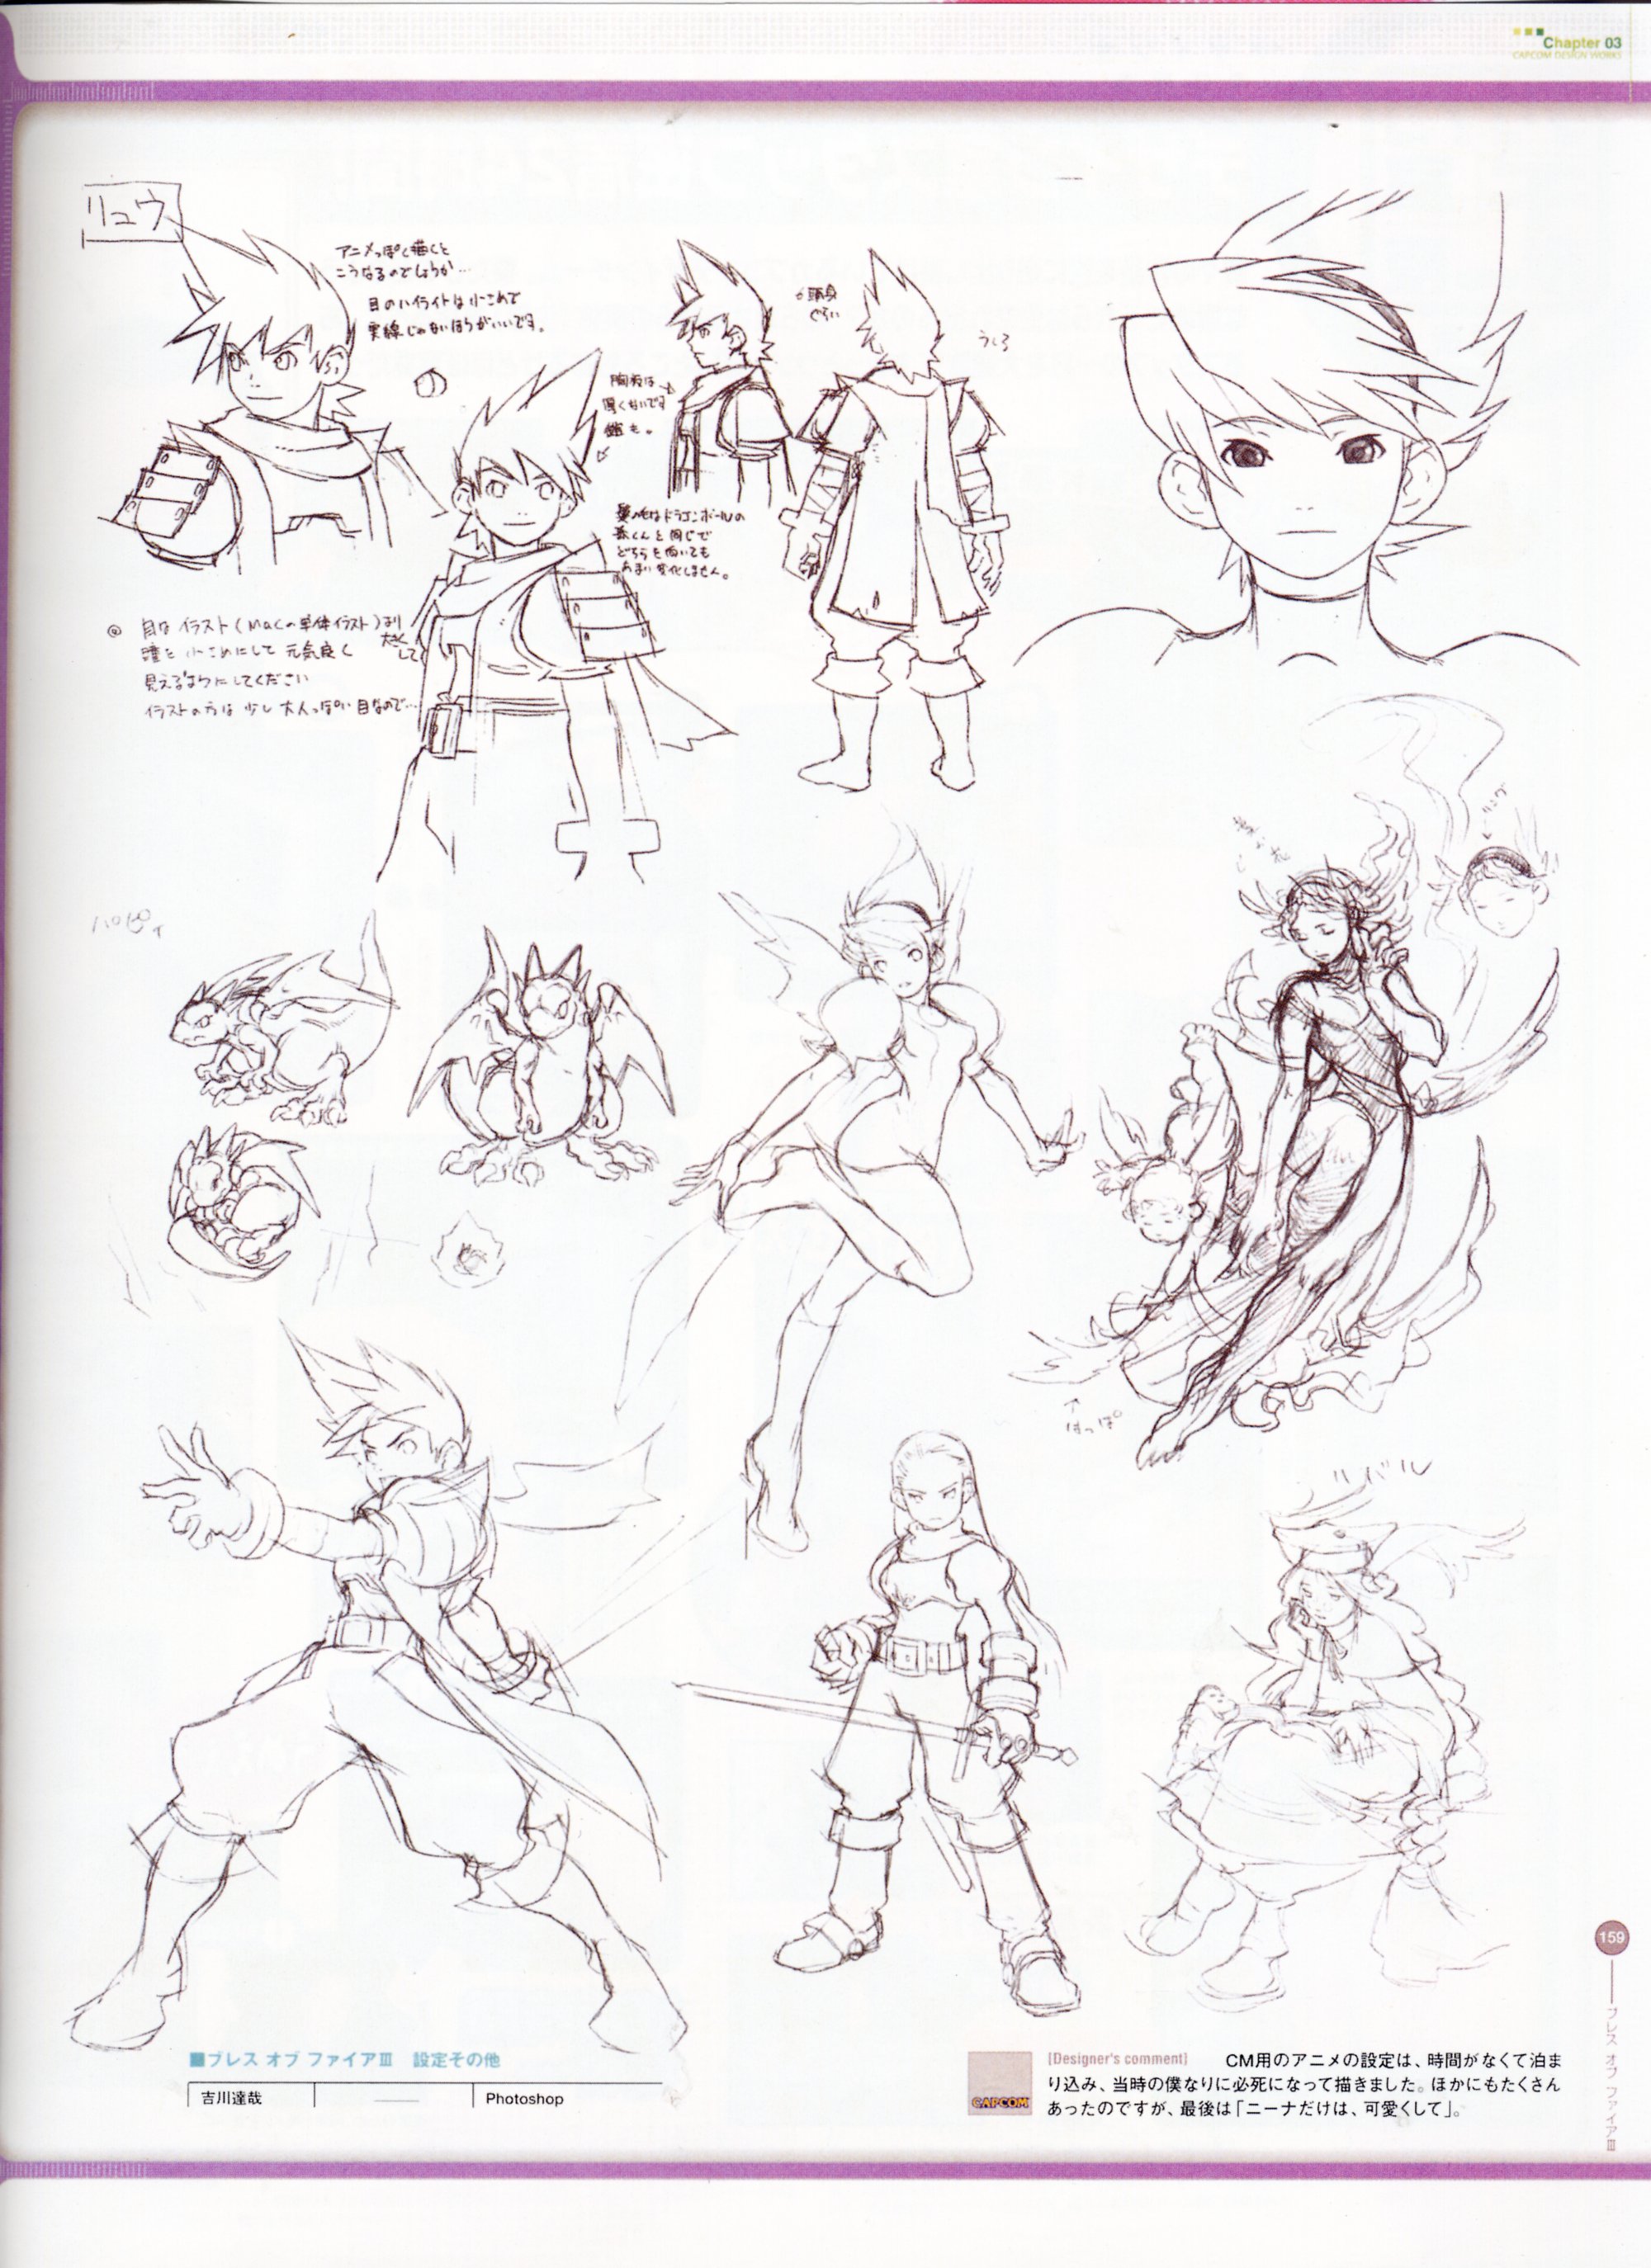 Chapter 03
CAPCOM DESIGN WORKS
リュウ
アニメっぽく描くと
こうなるのでしょうか…
目のハイライトは小さめで
実線じゃないほうがいいです。
6頭身
ぐらい
うしろ
胸板は
厚くないです
髪の毛はドラゴンボールの
悟くんと同じで
どちらを向いても
あまり変化しません。
◎ 目は イラスト(Macの単体イラスト)より
大きくして
瞳を 小さめにして 元気良く
見えるようにしてください
イラストの方は 少し 大人っぽい目なので…
パピィ
リング
はっぱ
159
ブレス オブ ファイアⅢ
■ブレス オブ ファイアⅢ 設定その他
吉川達哉 Photoshop
CAPCOM
[Designer's comment] CM用のアニメの設定は、時間がなくて泊ま
り込み、当時の僕なりに必死になって描きました。ほかにもたくさん
あったのですが、最後は「ニーナだけは、可愛くして」。